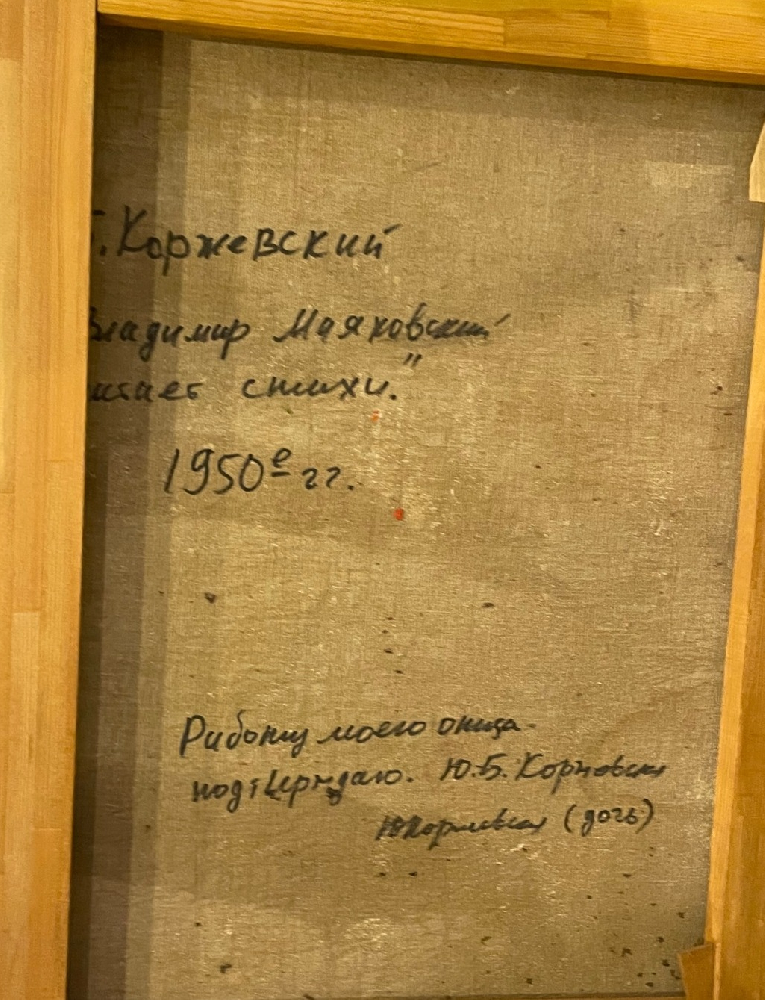 . Коржевский
Владимир Маяковский
итает стихи."
1950е гг.
Работу моего отца
подтверждаю. Ю.Б. Коржевская
(дочь)